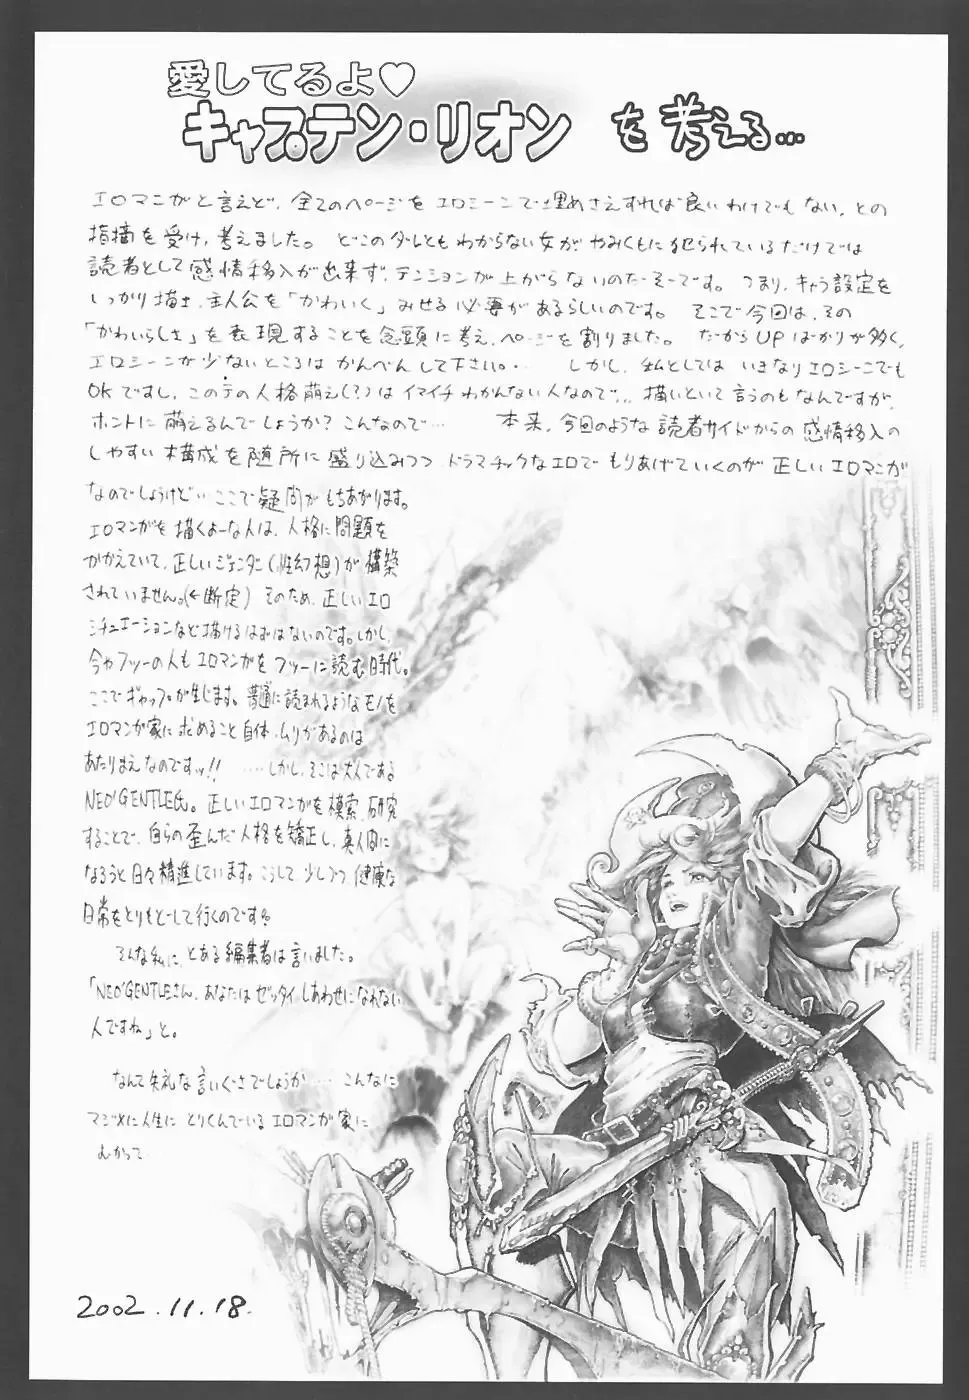 愛してるよ♡
キャプテン・リオン を考える…
エロマンガと言えど、全てのページをエロシーンで埋めさえすれば良いわけでもない、との
指摘を受け、考えました。 どこのダレともわからない女がやみくもに犯られているだけでは
読者として感情移入が出来ず、テンションが上がらないのだそーです。 つまり、キャラ設定を
しっかり描き、主人公を「かわいく」みせる必要があるらしいのです。 そこで今回は、その
「かわいらしさ」を表現することを念頭に考え、ページを割りました。 だからUPばかりが多く、
エロシーンが少ないところはかんべんして下さい。… しかし、私としてはいきなりエロシーンでも
OKですし、このテの人格萌え(?)はイマイチわかんない人なので… 描いといて言うのもなんですが、
ホントに萌えるんでしょうか? こんなので… 本来、今回のような読者サイドからの感情移入の
しやすい構成を随所に盛り込みつつ、ドラマチックなエロでもりあげていくのが正しいエロマンガ
なのでしょうけど… ここで疑問がもちあがります。
エロマンガを描くよーな人は、人格に問題を
かかえていて、正しいジェンダー(性幻想)が構築
されていません。(←断定) そのため、正しいエロ
シチュエーションなど描けるはずはないのです。しかし、
今やフツーの人もエロマンガをフツーに読む時代。
ここでギャップが生じます。普通に読まれるようなモノを
エロマンガ家に求めること自体、ムリがあるのは
あたりまえなのですッ!! ……しかし、そこは大人である
NEO'GENTLE氏。正しいエロマンガを模索、研究
することで、自らの歪んだ人格を矯正し、真人間に
なろうと日々精進しています。こうして、少しづつ健康な
日常をとりもどして行くのです。
そんな私に、とある編集者は言いました。
「NEO'GENTLEさん、あなたはゼッタイしあわせになれない
人ですね」と。
なんて失礼な言いぐさでしょうか…… こんなに
マジメに人生にとりくんでいるエロマンガ家に
むかって
2002.11.18.